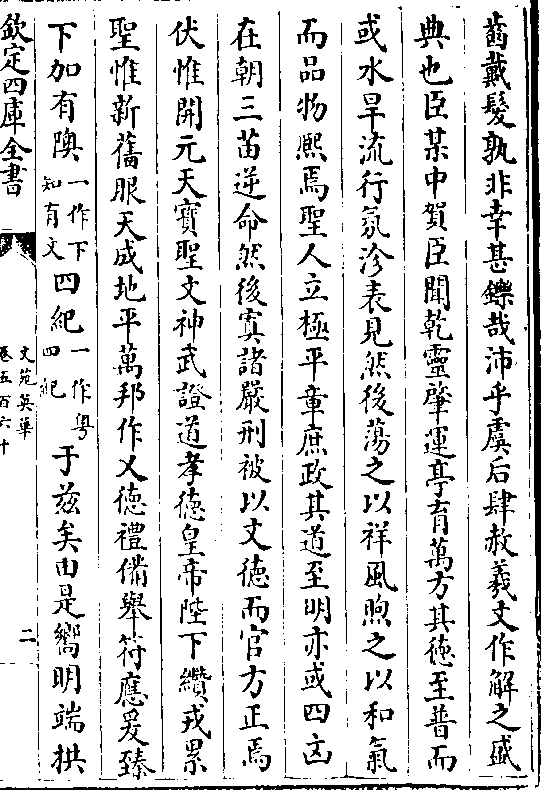 茜戴髮孰非幸甚鑠哉沛乎虞后肆赦羲文作解之盛
典也臣某中賀臣聞乾靈肇運亭育萬方其徳至普而
或水旱流行氛沴表見然後蕩之以祥風煦之以和氣
而品物熈焉聖人立極平章庶政其道至明亦或四凶
在朝三苗逆命然後寘諸嚴刑被以文德而官方正焉
伏惟開元天寳聖文神武證道孝德皇帝陛下纘戎累
聖惟新舊服天成地平萬邦作乂德禮備舉符應爰臻
下加有隩一作下知有文四紀一作粤四紀于兹矣由是嚮明端拱
欽定四庫全書
文苑英華
卷五百六十
二